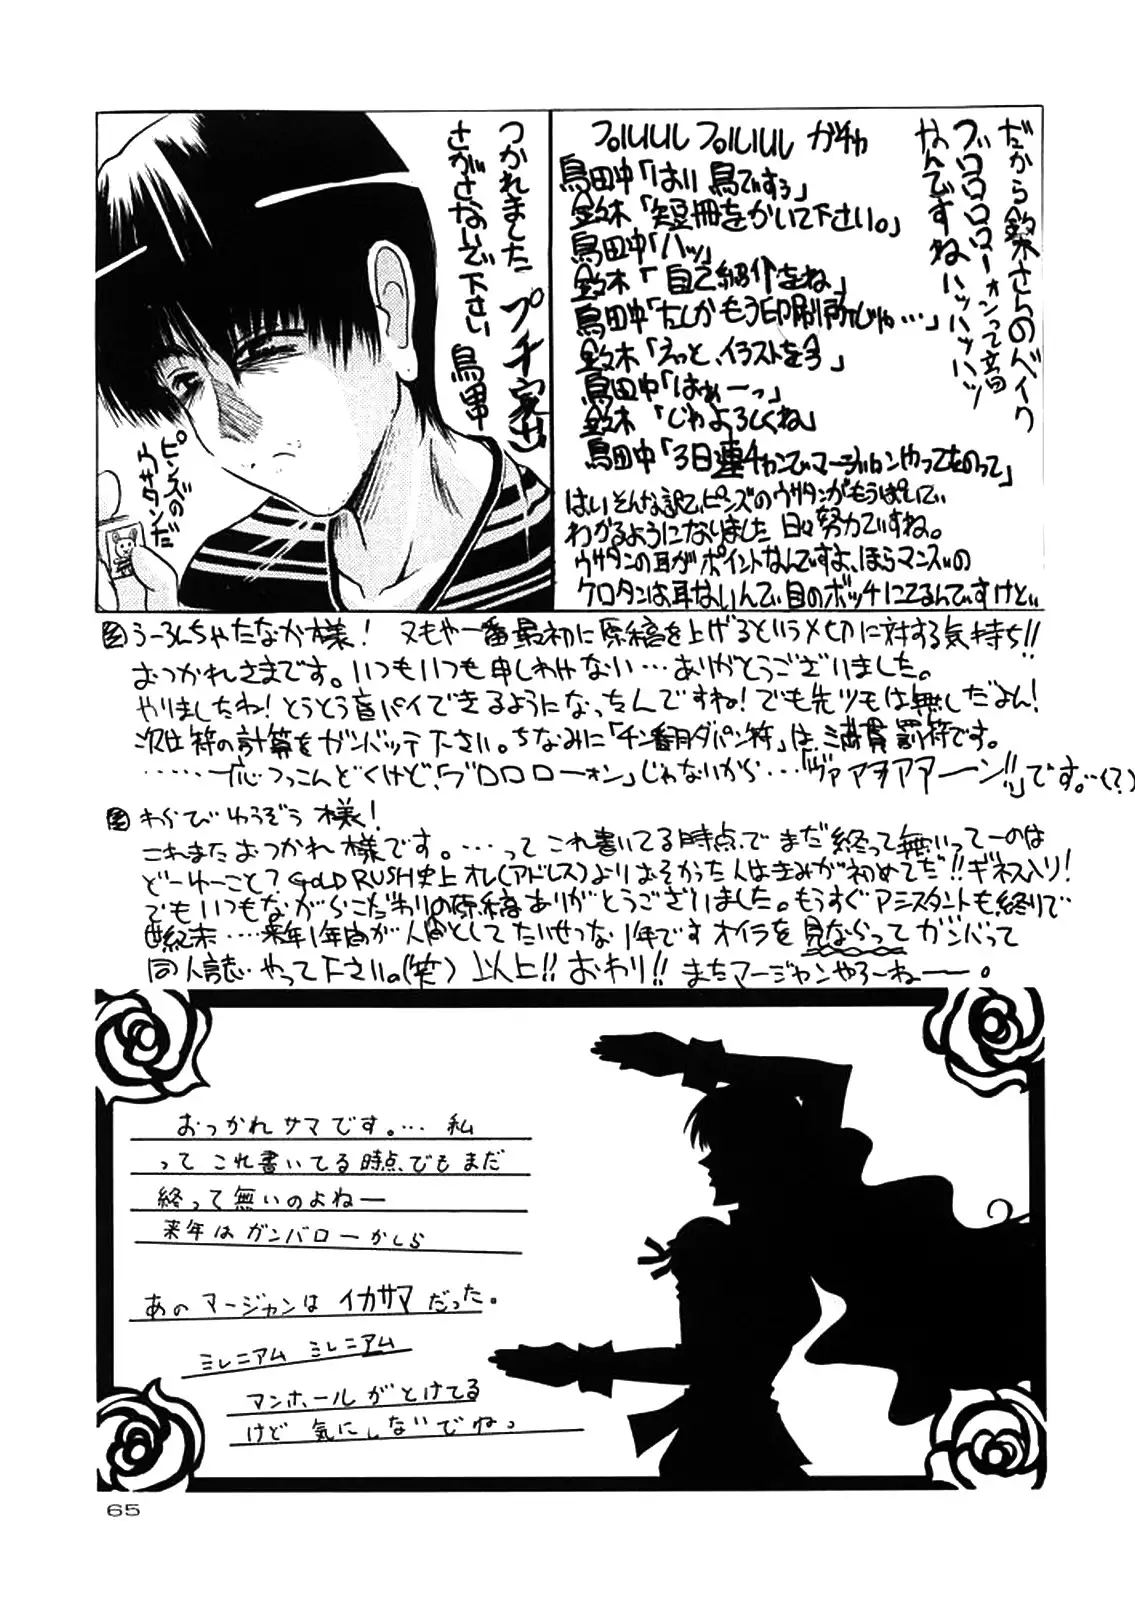 だから鈴木さんのバイク
ブロロロローォンって音
なんですねハッハッハッ
プルルルル プルルルル ガチャ
烏田中「はい 烏ですぅ」
鈴木「短冊をかいて下さい。」
烏田中「ハッ」
鈴木「自己紹介をね」
烏田中「たしかもう印刷所じゃ…」
鈴木「えっと、イラストを今」
烏田中「はぁーっ」
鈴木「じゃよろしくね」
烏田中「3日連チャンでマージャンやってたのって」
はい そんな訳で、ピンズのウサタンがもうぱいで
わかるようになりました 日々努力ですね。
ウサタンの耳がポイントなんですよ、ほらマンズの
ケロタンは耳ないんで 目のボッチにてるんですけど
つかれました プチ家出
さがさないで下さい 烏田中
ピンズの
ウサタンだ
うーろんちゃたなか様! 又もや一番最初に原稿を上げるという〆切に対する気持ち!!
おつかれさまです。いつもいつも申しわけない…ありがとうございました。
やりましたね!とうとう盲パイできるようになったんですね!でも先ツモは無しだよん!
次は符の計算をガンバッテ下さい。ちなみに「チン番月ダパン符」は満貫罰符です。
……一応つっこんどくけど、「ブロロローォン」じゃないから…「ヴァアヲアアーン!!」です。…(?)
わらびゆうぞう様!
これまたおつかれ様です。…って これ書いてる時点で まだ終って無いって一のは
どーゆーこと?GOLD RUSH史上オレ(アドレス)よりおそかった人はきみが初めてだ!!ギネス入り!
でもいつもながらこだわりの原稿ありがとうございました。もうすぐアシスタントも終りで
世紀末…来年1年間が人間としてたいせつな1年です オイラを見ならって ガンバって
同人誌、やって下さい。(笑) 以上!!おわり!! またマージャンやろーねー。
おっかれサマです。… 私
って これ書いてる時点でも まだ
終って無いのよねー
来年はガンバローかしら
あのマージャンは イカサマだった。
ミレニアム ミレニアム
マンホールがとけてる
けど 気にしないでねっ
65